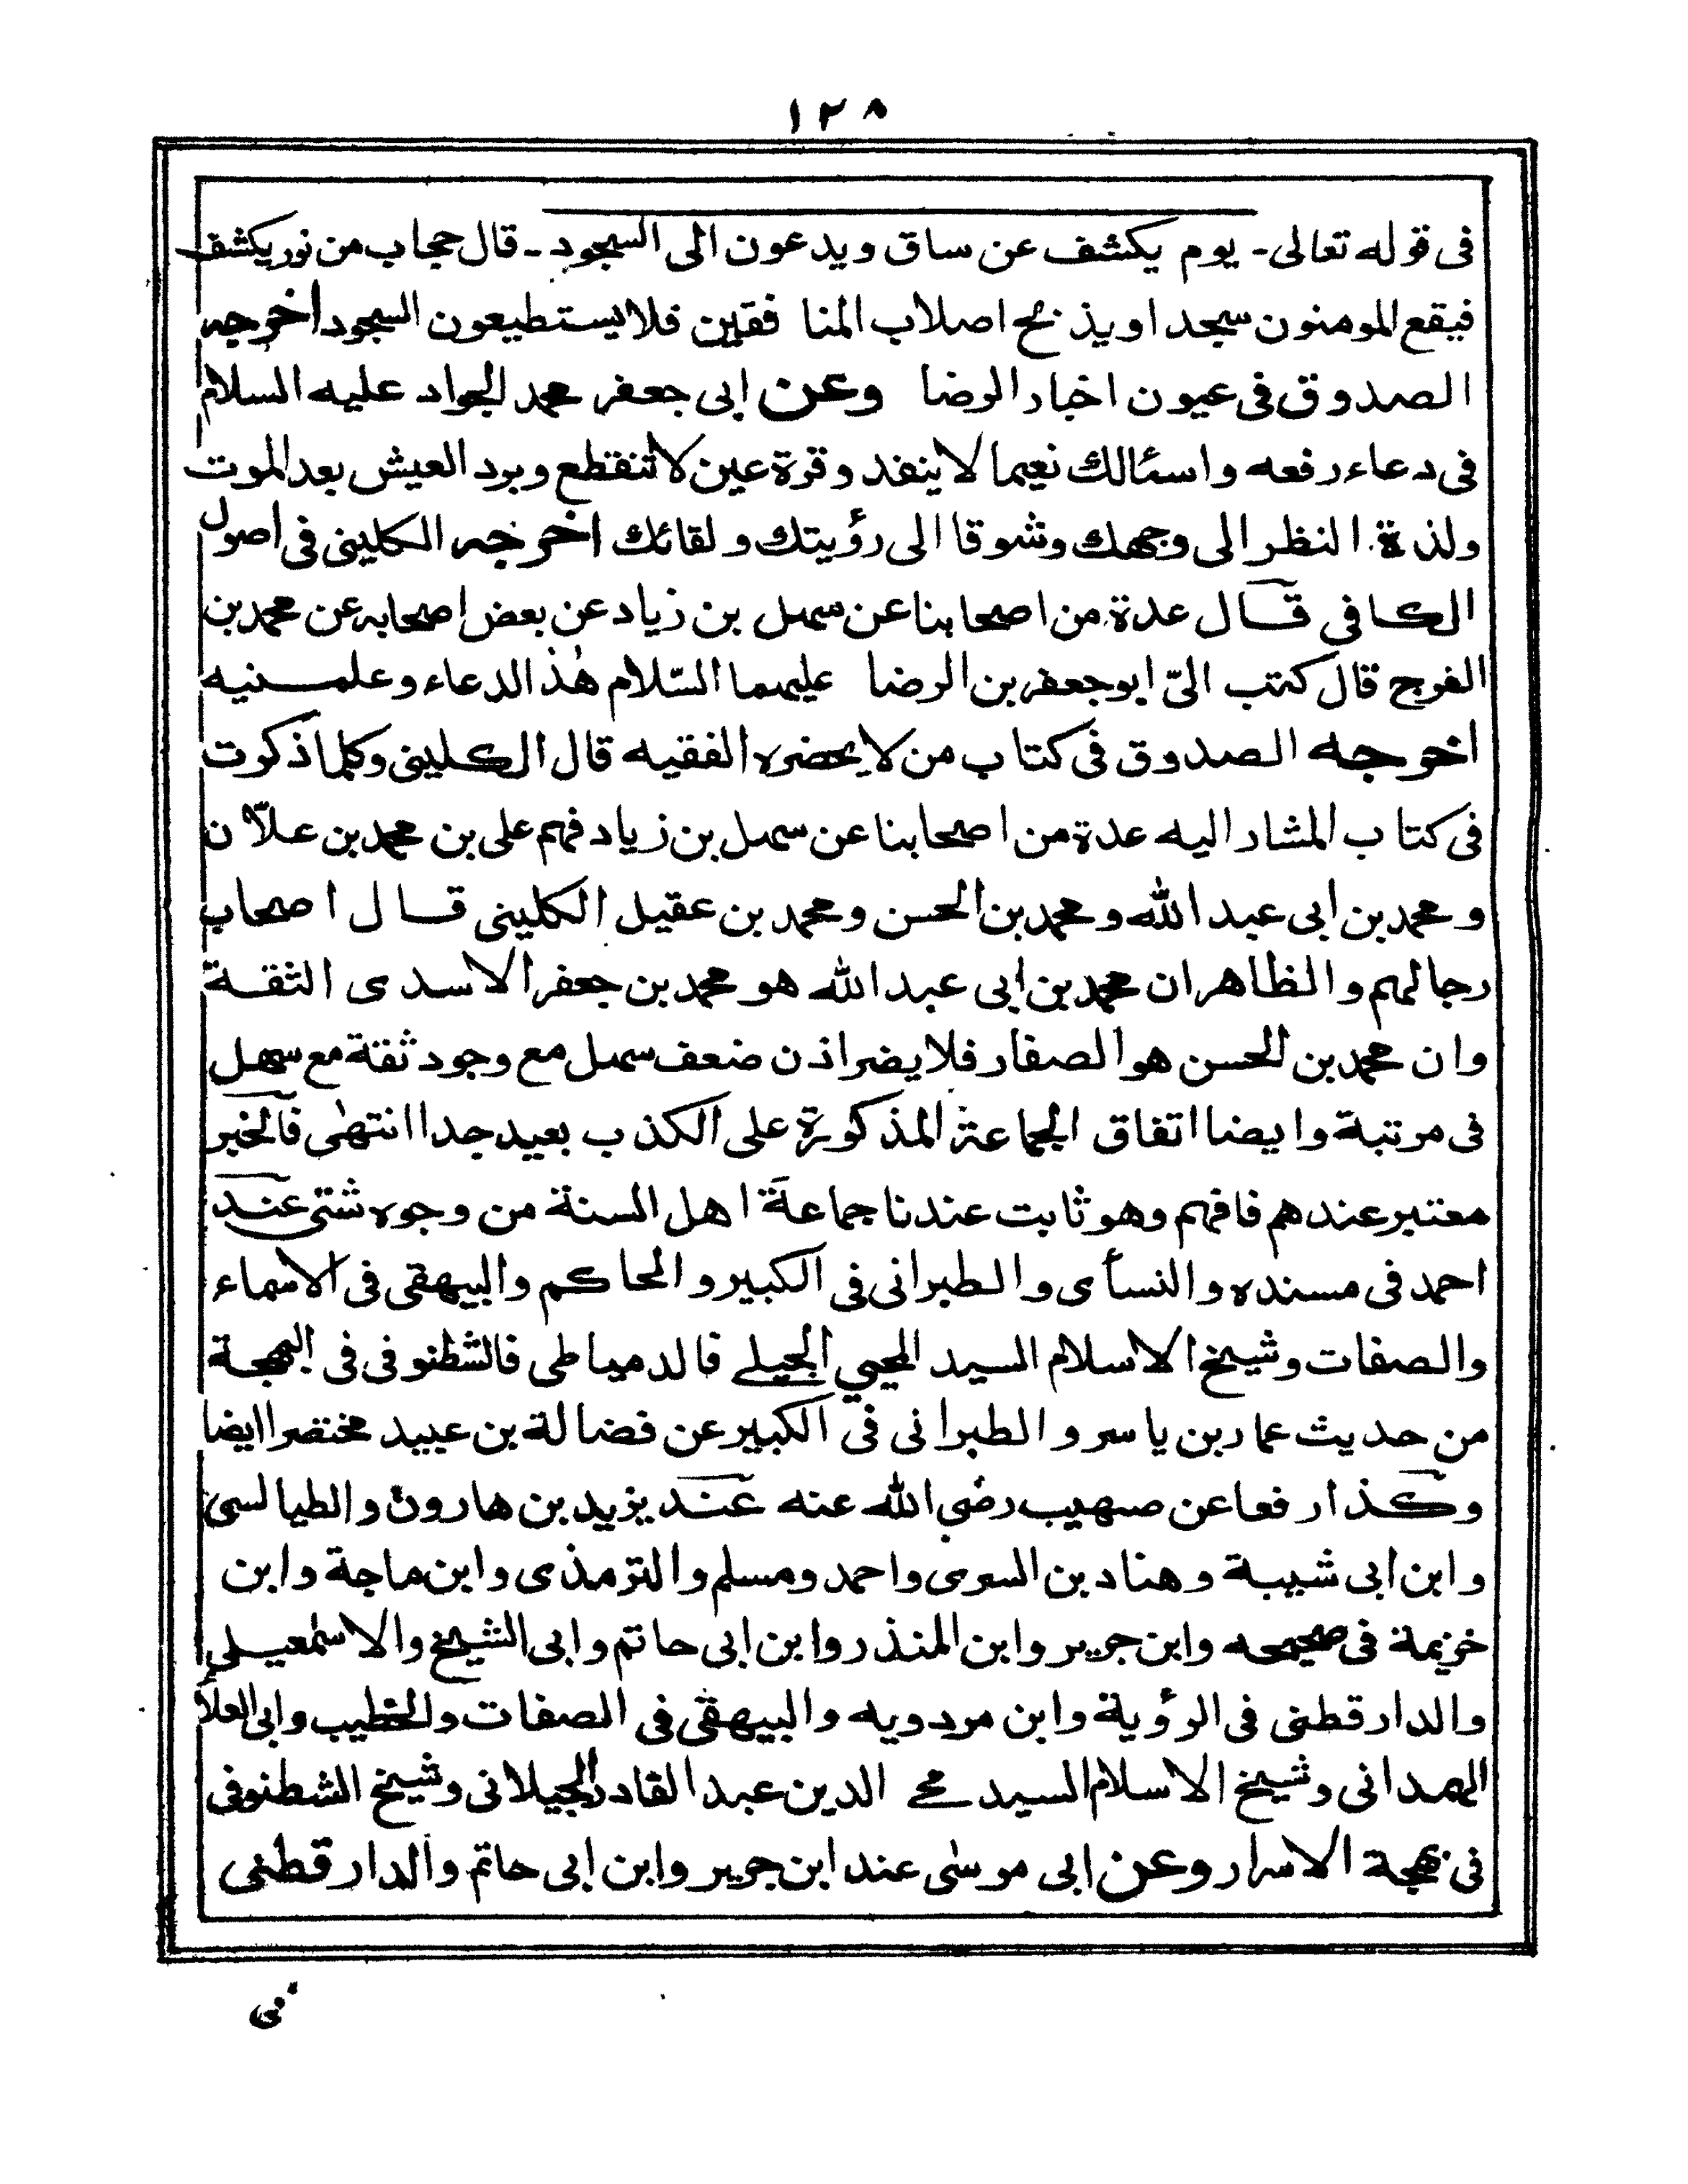 ١٢٨
فى قوله تعالى - يوم يكشف عن ساق ويدعون الى السجود - قال حجاب من نور يكشف
فيقع المومنون سجدا ويذبح اصلاب المنا فقين فلا يستطيعون السجود اخرجه
الصدوق فى عيون اخبار الرضا وعن ابى جعفر محمد الجواد عليه السلام
فى دعاء رفعه واسئالك نعيما لا ينفد وقرة عين لا تنقطع وبرد العيش بعد الموت
ولذة النظر الى وجهك وشوقا الى رؤيتك ولقائك اخرجه الكلينى فى اصول
الكافى قال عدة من اصحابنا عن سهل بن زياد عن بعض اصحابه عن محمد بن
الفرج قال كتب الىّ ابو جعفر بن الرضا عليهما السّلام هٰذ الدعاء وعلمنيه
اخرجه الصدوق فى كتاب من لا يحضره الفقيه قال الكلينى وكلما ذكرت
فى كتاب المشار اليه عدة من اصحابنا عن سهل بن زياد فهم على بن محمد بن علاّن
ومحمد بن ابى عبد الله ومحمد بن الحسن ومحمد بن عقيل الكلينى قال اصحاب
رجالهم والظاهر ان محمد بن ابى عبد الله هو محمد بن جعفر الاسدى الثقة
وان محمد بن الحسن هو الصفار فلا يضر اذن ضعف سهل مع وجود ثقة مع سهل
فى مرتبة وايضا اتفاق الجماعة المذكورة على الكذب بعيد جدا انتهٰى فالخبر
معتبر عندهم فافهم وهو ثابت عندنا جماعة اهل السنة من وجوه شتى عند
احمد فى مسنده والنسأى والطبرانى فى الكبير والحاكم والبيهقى فى الاسماء
والصفات وشيخ الاسلام السيد المحيي الجيلے فالدمياطى فالشطنوفى فى البهجة
من حديث عمار بن ياسر والطبرانى فى الكبير عن فضالة بن عبيد مختصرا ايضا
وكذا رفعا عن صهيب رضى الله عنه عند يزيد بن هارون والطيالسى
وابن ابى شيبة وهناد بن السرى واحمد ومسلم والترمذى وابن ماجة وابن
خزيمة فى صحيحه وابن جرير وابن المنذر وابن ابى حاتم وابى الشيخ والاسمٰعيلى
والدارقطنى فى الرؤية وابن مردويه والبيهقى فى الصفات والخطيب وابى العلاء
الهمدانى وشيخ الاسلام السيد محے الدين عبد القادر الجيلانى وشيخ الشطنوفى
فى بهجة الاسرار وعن ابى موسٰى عند ابن جرير وابن ابى حاتم والدارقطنى
فى